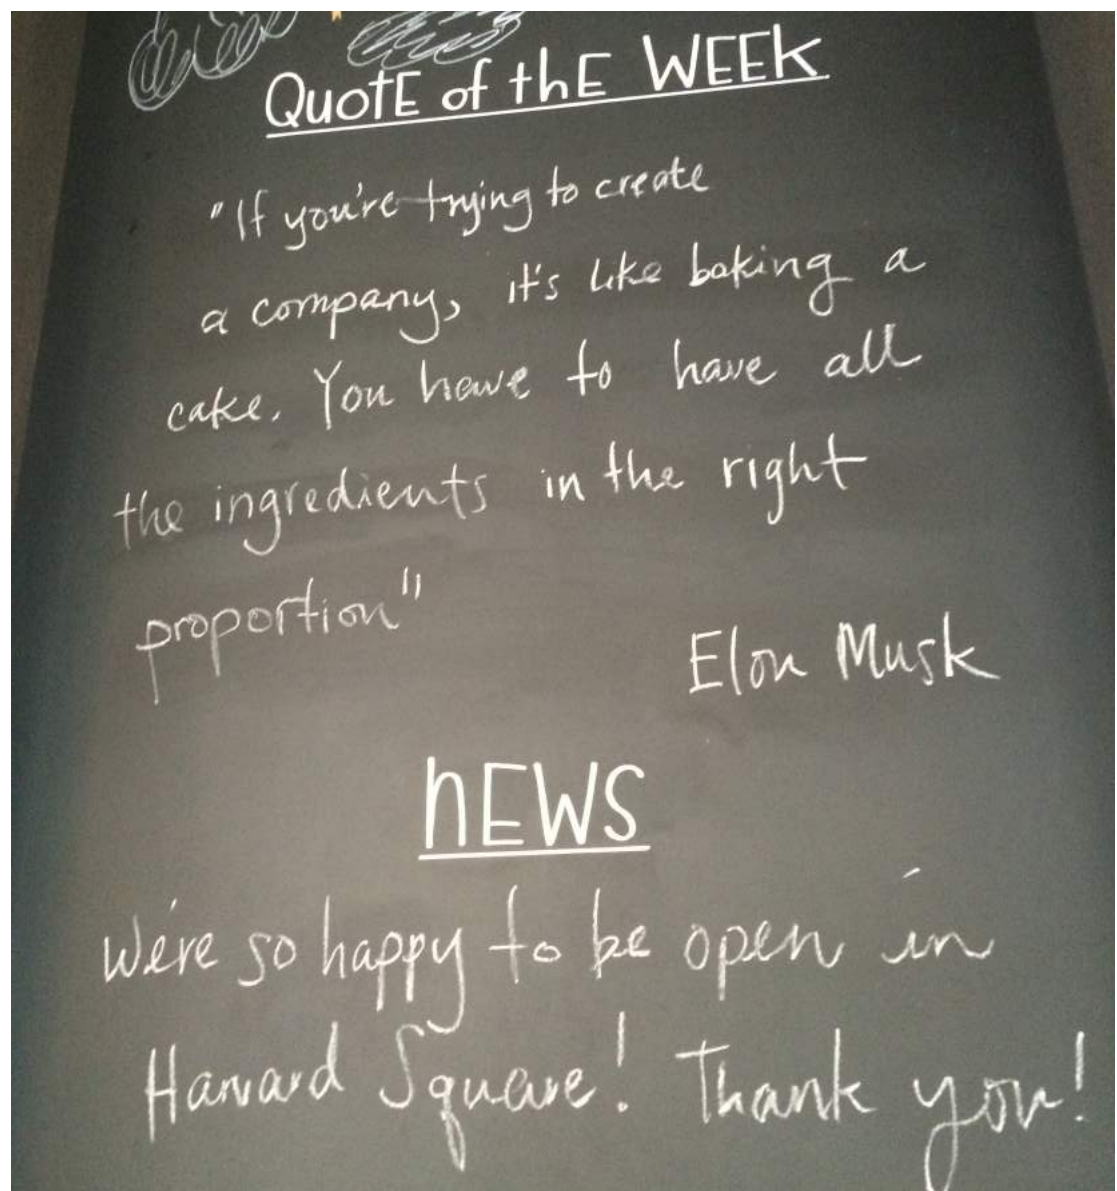 QuotE of thE WEEK
"If you're trying to create
a company, it's like baking a
cake. You have to have all
the ingredients in the right
proportion"
Elon Musk
nEWS
We're so happy to be open in
Harvard Square! Thank you!